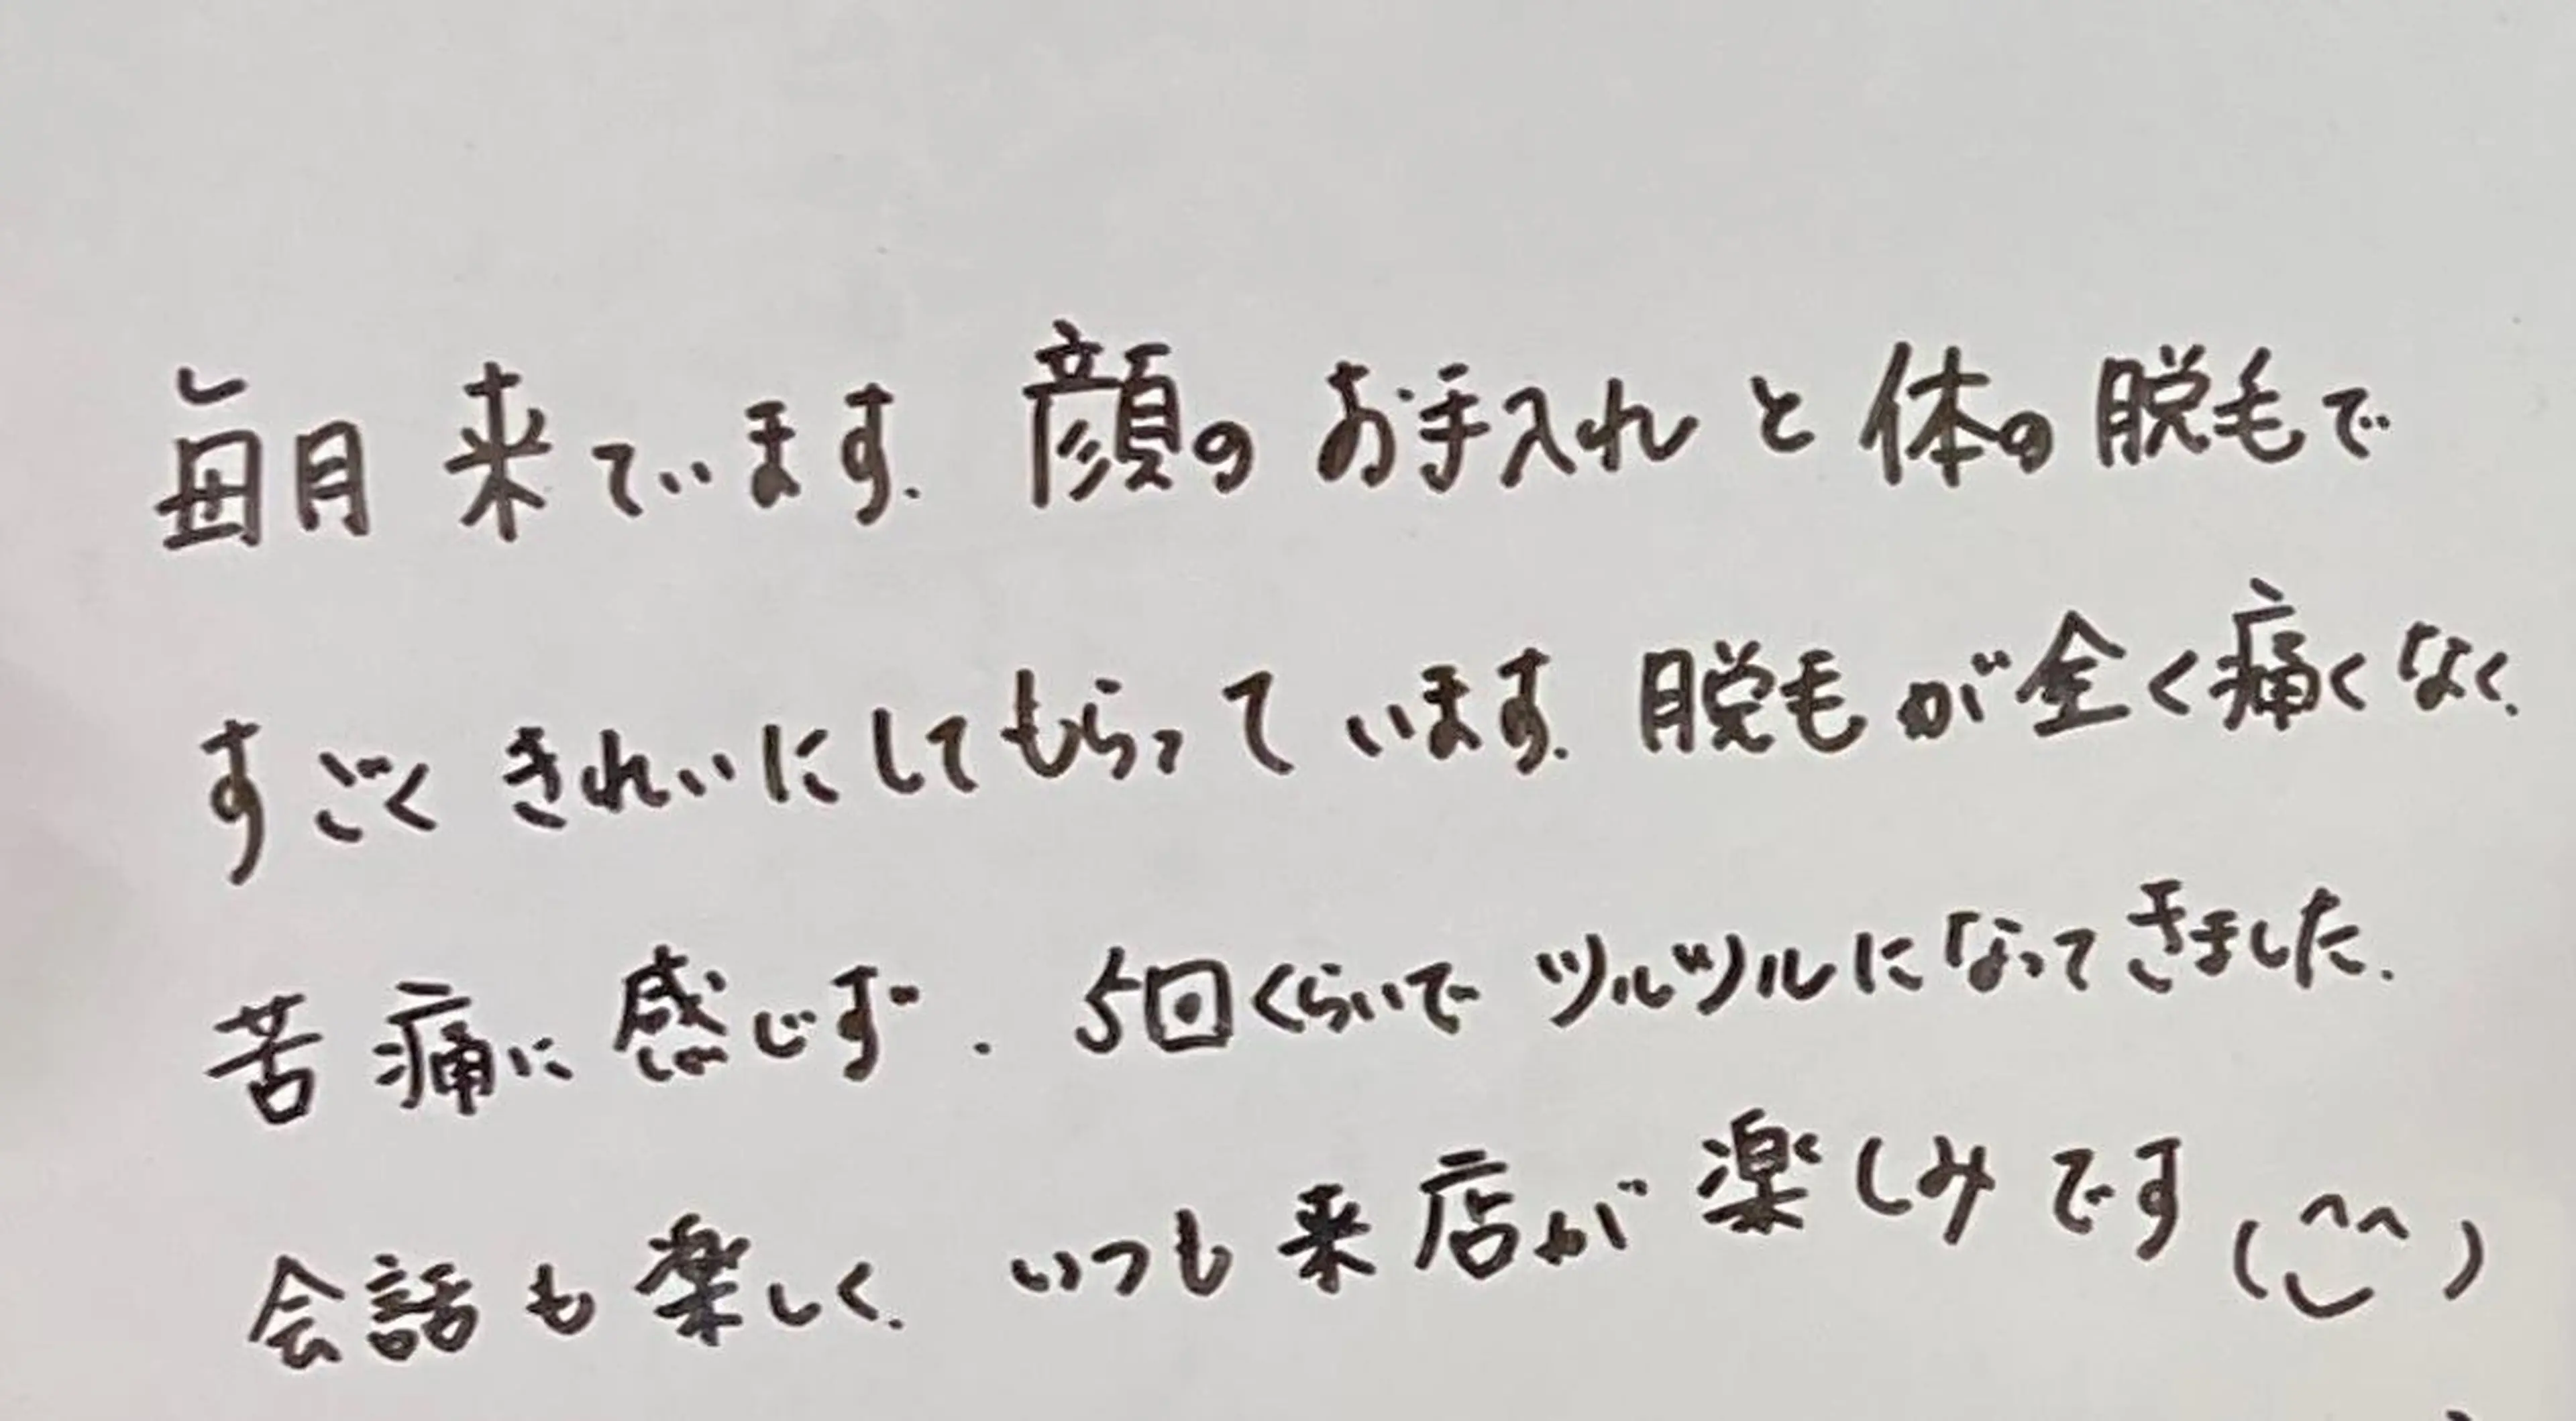 毎月来ています. 顔のお手入れと体の脱毛で
すごくきれいにしてもらっています. 脱毛が全く痛くなく.
苦痛に感じず. 5回くらいでツルツルになってきました.
会話も楽しく. いつも来店が楽しみです(^^)